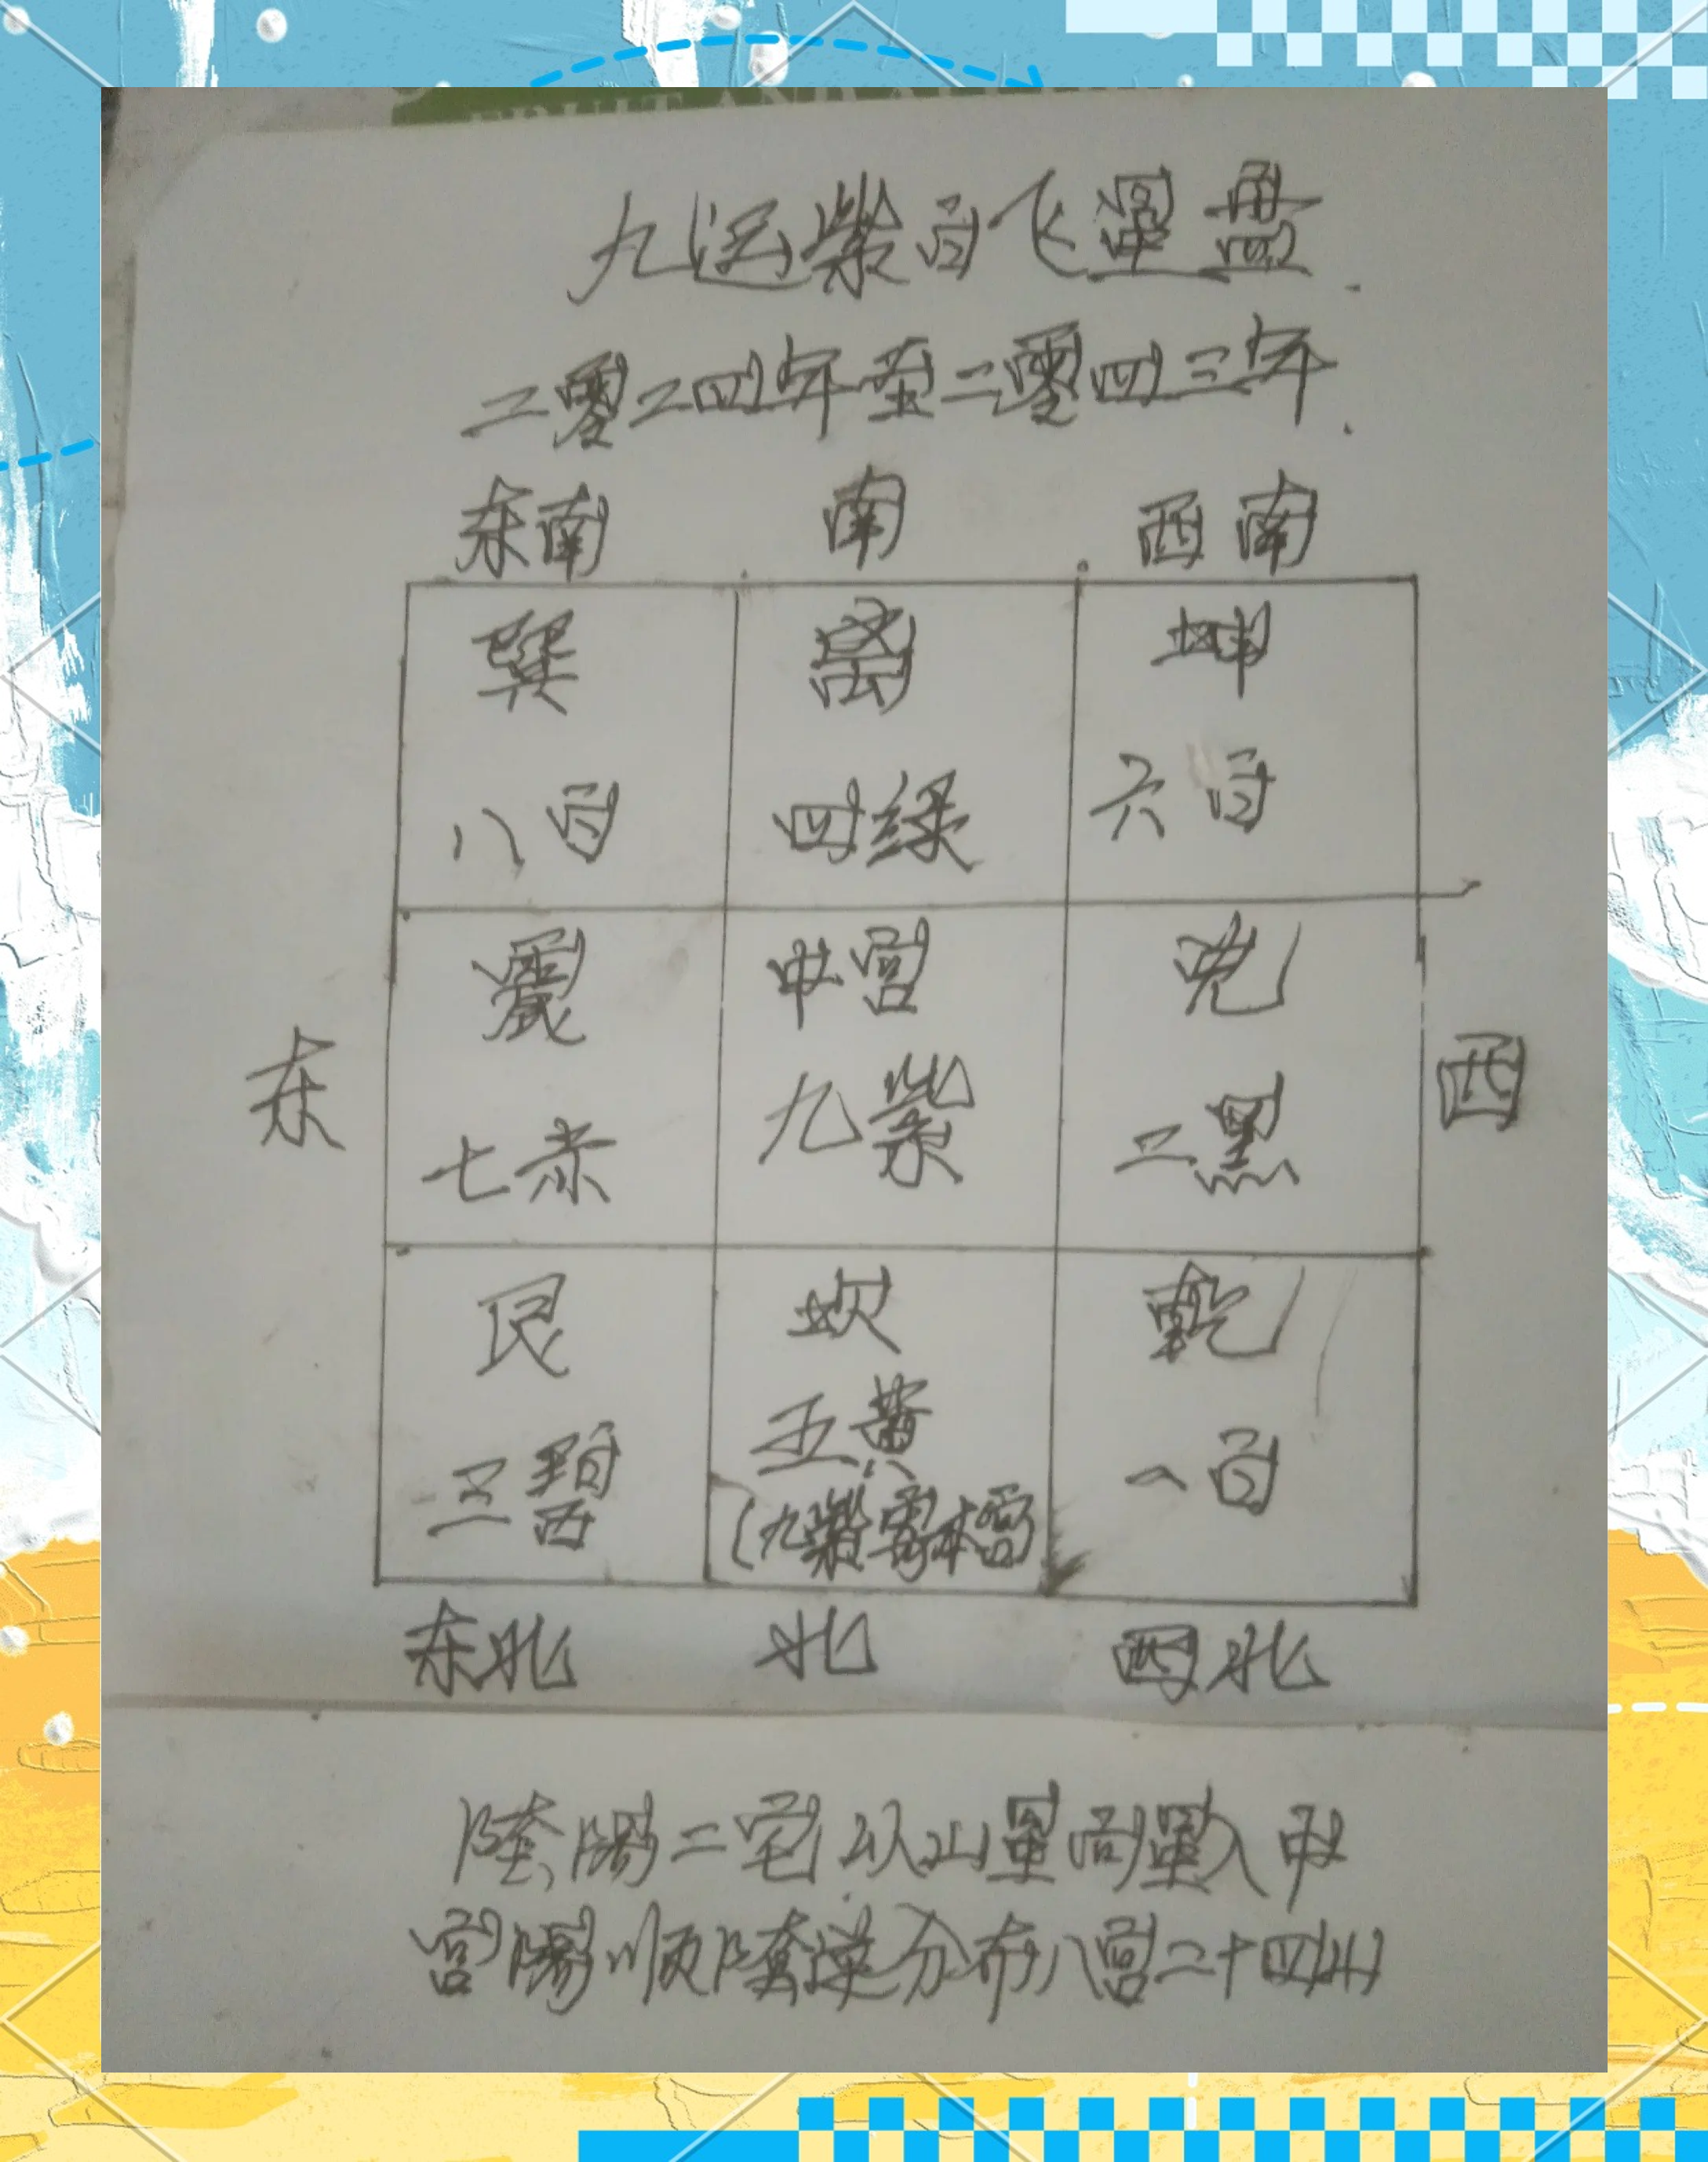 FRUIT AND
九运紫白飞星盘.
二零二四年至二零四三年.
东南 南 西南
巽 离 坤
八白 四绿 六白
震 中宫 兑
东 西
七赤 九紫 二黑
艮 坎 乾
三碧 五黄 一白
(九紫寄本宫)
东北 北 西北
陰陽二宅以山星向星入中
宫陽顺陰逆分布八宫二十四山